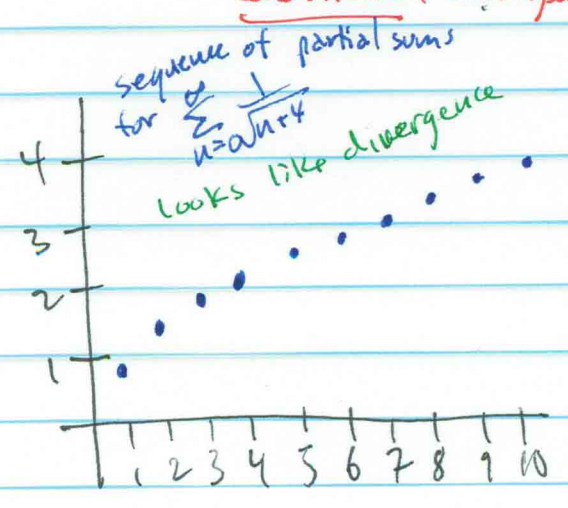 sequence of partial sums
for ∞∑n=0 1/√(n+4)
looks like divergence
4
3
2
1
1 2 3 4 5 6 7 8 9 10